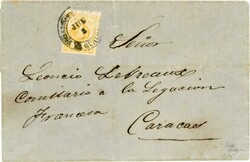 JUN
Señor
Leoncio Letreaux
Comisario a la Legacion
Francesa
Caracas